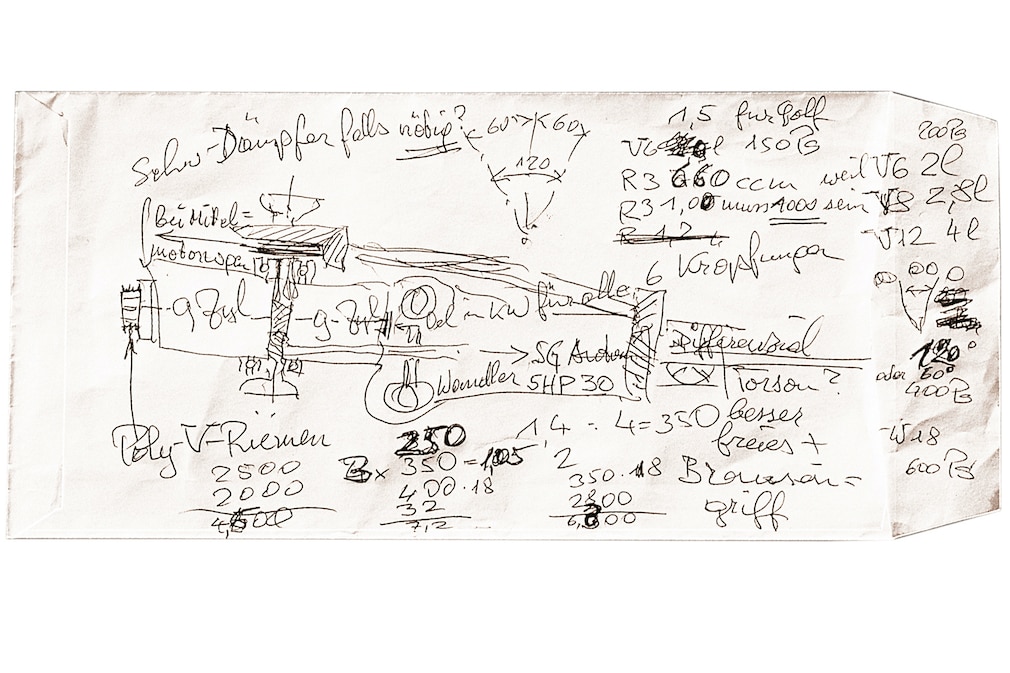 Schw-Dämpfer falls nötig?
60° 60
120
1,5 für Golf
V6 l 150 PS
R3 660 ccm weil
R3 1,00 muss 1000 sein
R 1,2
6 Kröpfungen
200 PS
V6 2l
V8 2,8l
V12 4l
120°
oder 60°
400 PS
W18
600 PS
Bei Mittel=
motorwagen
9 Zyl
9 Zyl
Oel in KW für alle
SG Autom
Wandler 5HP 30
Differenzial
Torson?
besser
freies +
Bremsen=
griff
Poly-V-Riemen
2500
2000
4,500
250
B x 350 = 1,05
400 . 18
32
7,2
1,4 - 4 = 350
2
350 . 18
2800
6,300